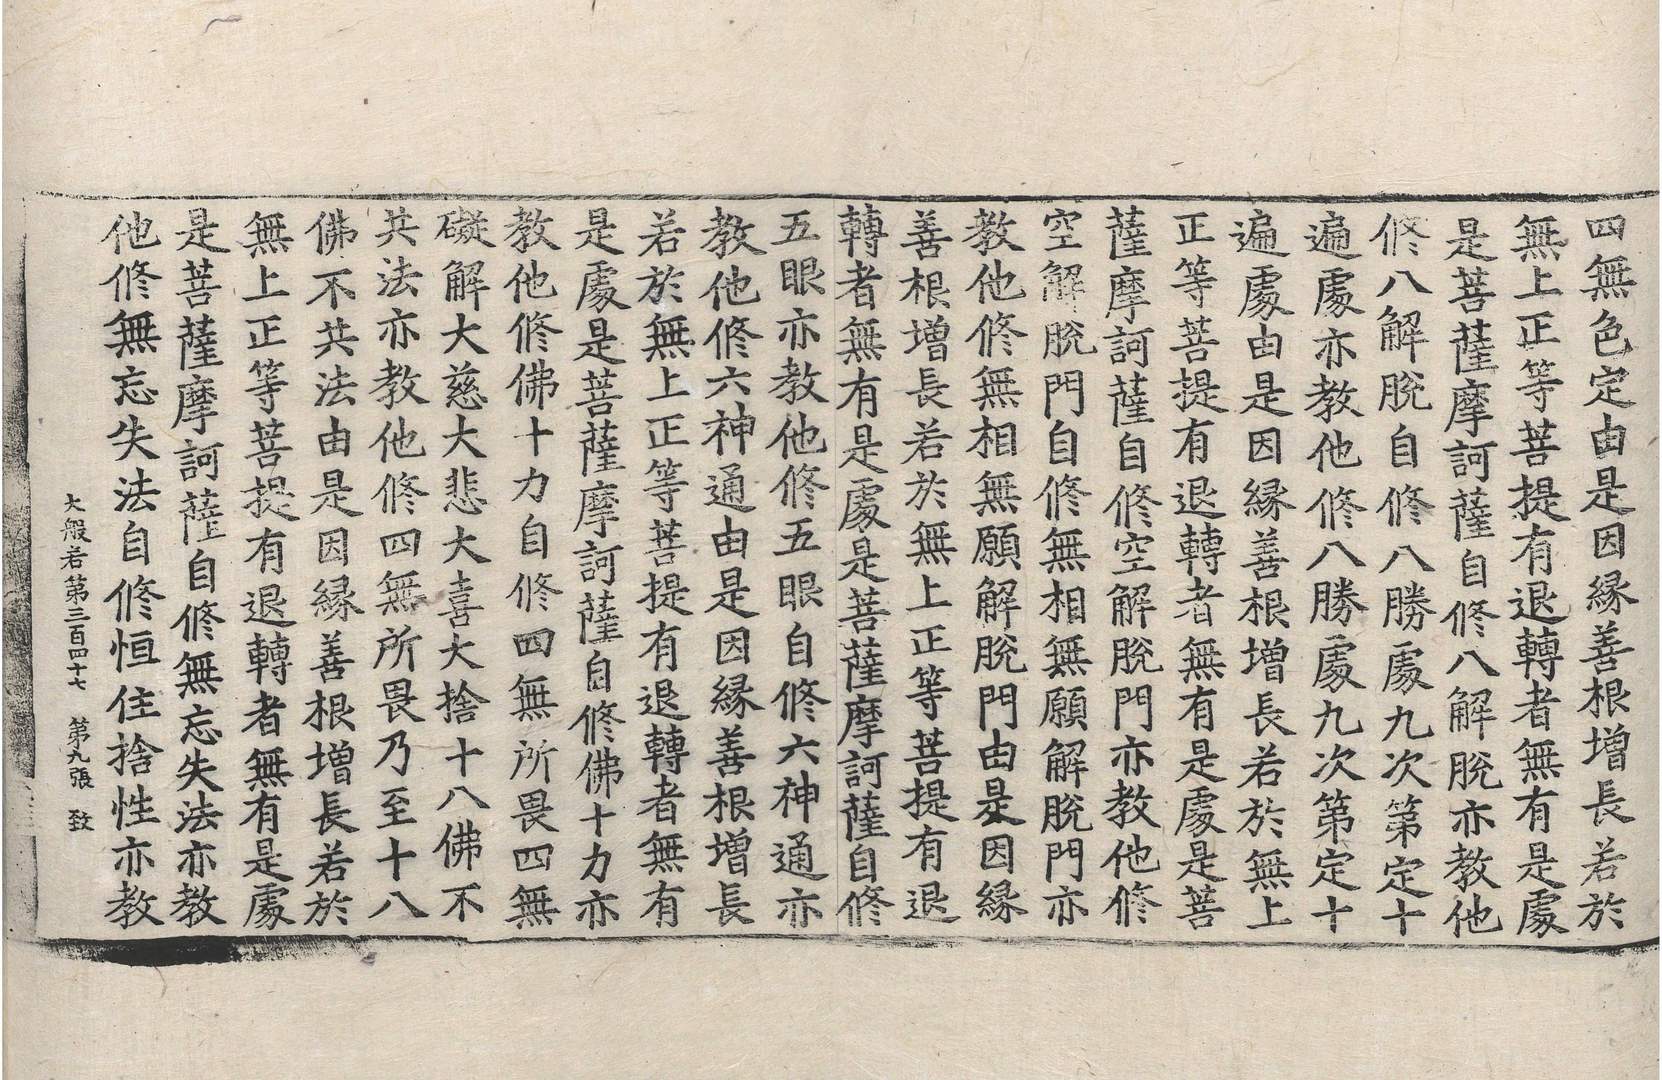 四無色定由是因縁善根增長若於
無上正等菩提有退轉者無有是處
是菩薩摩訶薩自修八解脫亦教他
修八解脫自修八勝處九次第定十
遍處亦教他修八勝處九次第定十
遍處由是因縁善根增長若於無上
正等菩提有退轉者無有是處是菩
薩摩訶薩自修空解脫門亦教他修
空解脫門自修無相無願解脫門亦
教他修無相無願解脫門由是因縁
善根增長若於無上正等菩提有退
轉者無有是處是菩薩摩訶薩自修
五眼亦教他修五眼自修六神通亦
教他修六神通由是因縁善根增長
若於無上正等菩提有退轉者無有
是處是菩薩摩訶薩自修佛十力亦
教他修佛十力自修四無所畏四無
礙解大慈大悲大喜大捨十八佛不
共法亦教他修四無所畏乃至十八
佛不共法由是因縁善根增長若於
無上正等菩提有退轉者無有是處
是菩薩摩訶薩自修無忘失法亦教
他修無忘失法自修恒住捨性亦教
大般若第三百四十七 第九張 致